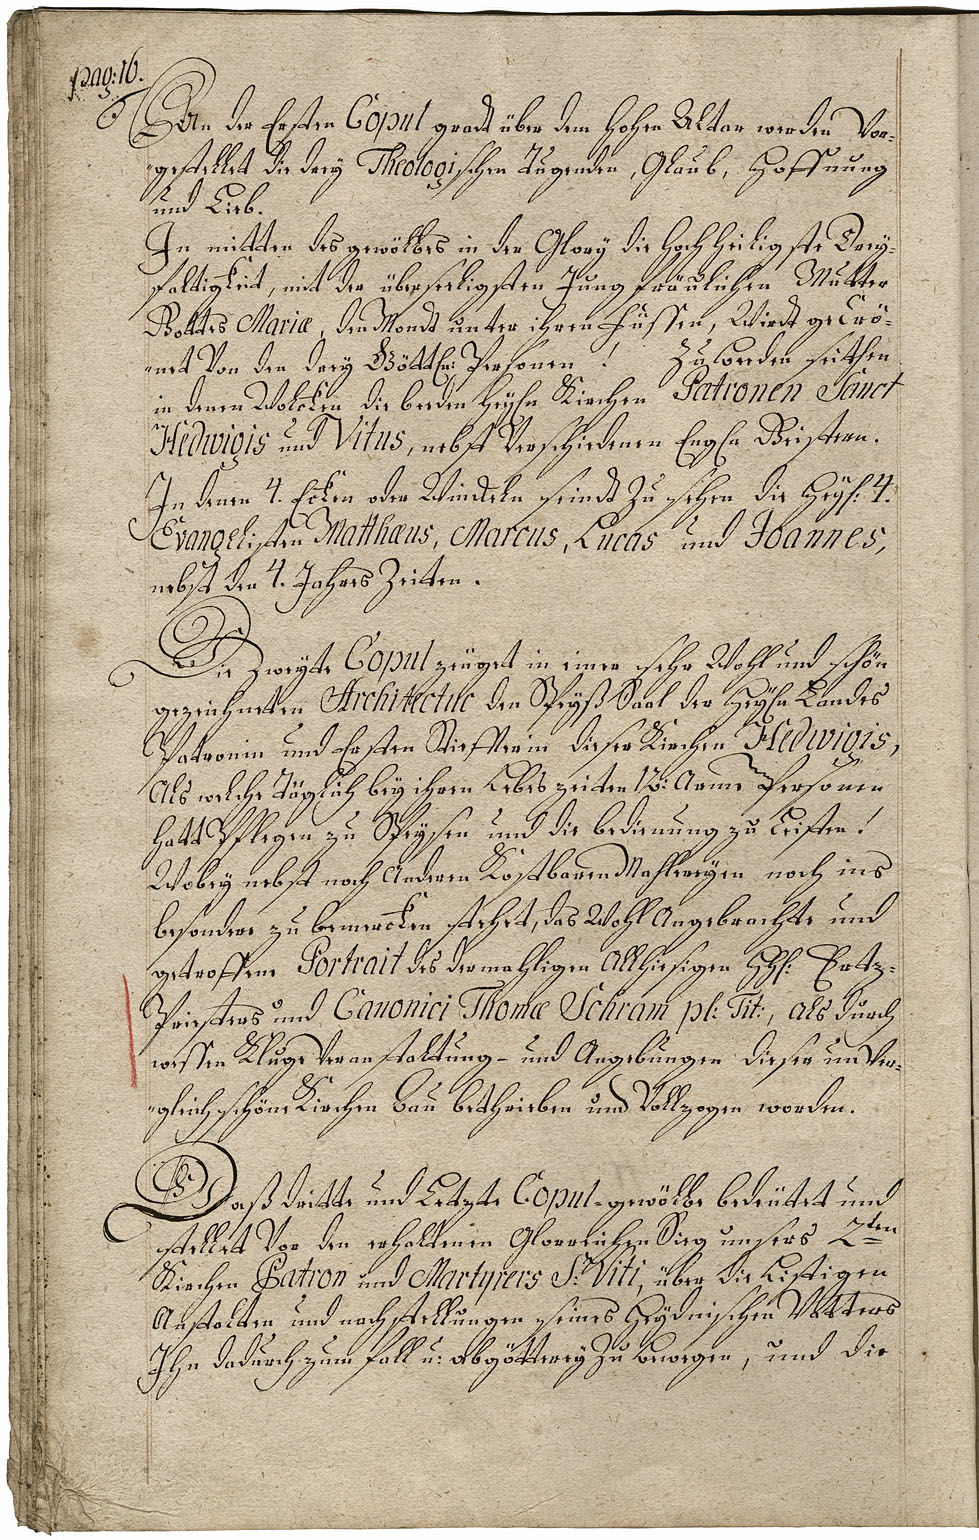 pag: 16.
An der Ersten Copul gradt über dem hohen Altar werden Vor-
-gestellet die drey Theologischen Tugenden, Glaub, Hoffnung
und Lieb.
In mitten des gewölbes in der Glory die hoch heiligste Drey-
faltigkeit, mit der überseeligsten Jungfräulichen Mutter
Gottes Mariæ, den Mondt unter ihren Füssen, Wirdt gecrö-
-net Von den drey Göttln: Persohnen! Zu beeden seithen
in denen Wolcken die beeden heyln Kirchen Patronen Sanct
Hedwigis und Vitus, nebst Verschiedenen Engln Geistern.
In denen 4. Ecken oder Winckeln seindt zu sehen die Heyl: 4.
Evangelisten Matthæus, Marcus, Lucas und Joannes,
nebst den 4. Jahres Zeiten.
Die Zweyte Copul zeüget in einer sehr Wohl und schön
gezeichneten Architectur den Speyß Saal der Heyln Landes
Patronin und Ersten Stiffterin dieser Kirchen Hedwigis,
Als welche Täglich bey ihren Lebes zeiten 12: Arme Personen
hatt Pflegen zu Speysen und die bedienung zu Leisten!
Wobey nebst noch Anderen Kostbaren Mahlereyen noch ins
besondere zu bemercken stehet, das Wohl Angebrachte und
getroffene Portrait des dermahligen Allhiesigen Ertz-
Priesters und Canonici Thomæ Schram pl: Tit:, als durch
wessen Kluge Veranstaltung- und Angebungen dieser un Ver-
-gleich schöne Kirchen bau bethrieben und Vollzogen worden.
Daß dritte und Letzte Copul-gewölbe bedeütet und
stellet Vor den erhaltenen Glorreichen Sieg unsers 2ten
Kirchen Patron und Martyrers St: Viti, über die Listigen
Anstalten und nachstellungen seines Heydnischen Vatters
Ihn dadurch zum fall u: abgötterey zu bewegen, und die